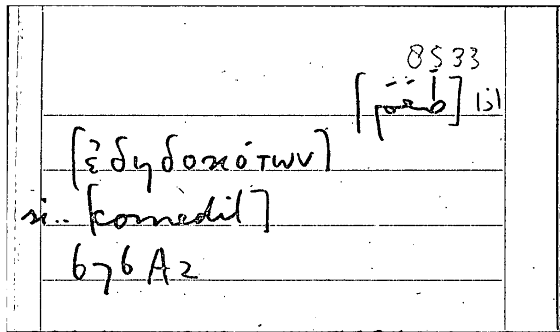 0533
[ἐδηδοκότων]
si.. [comedit]
676 A2